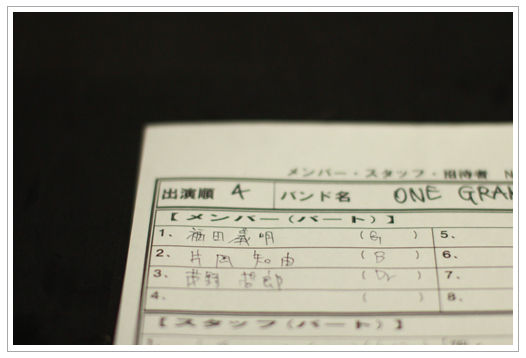 メンバー・スタッフ・招待者 N
出演順 4 バンド名 ONE GRAN
【メンバー(パート)】
1. 福田義明 (G) 5.
2. 片岡知由 (B) 6.
3. 哲郎 (Dr) 7.
4. ( ) 8.
【スタッフ(パート)】